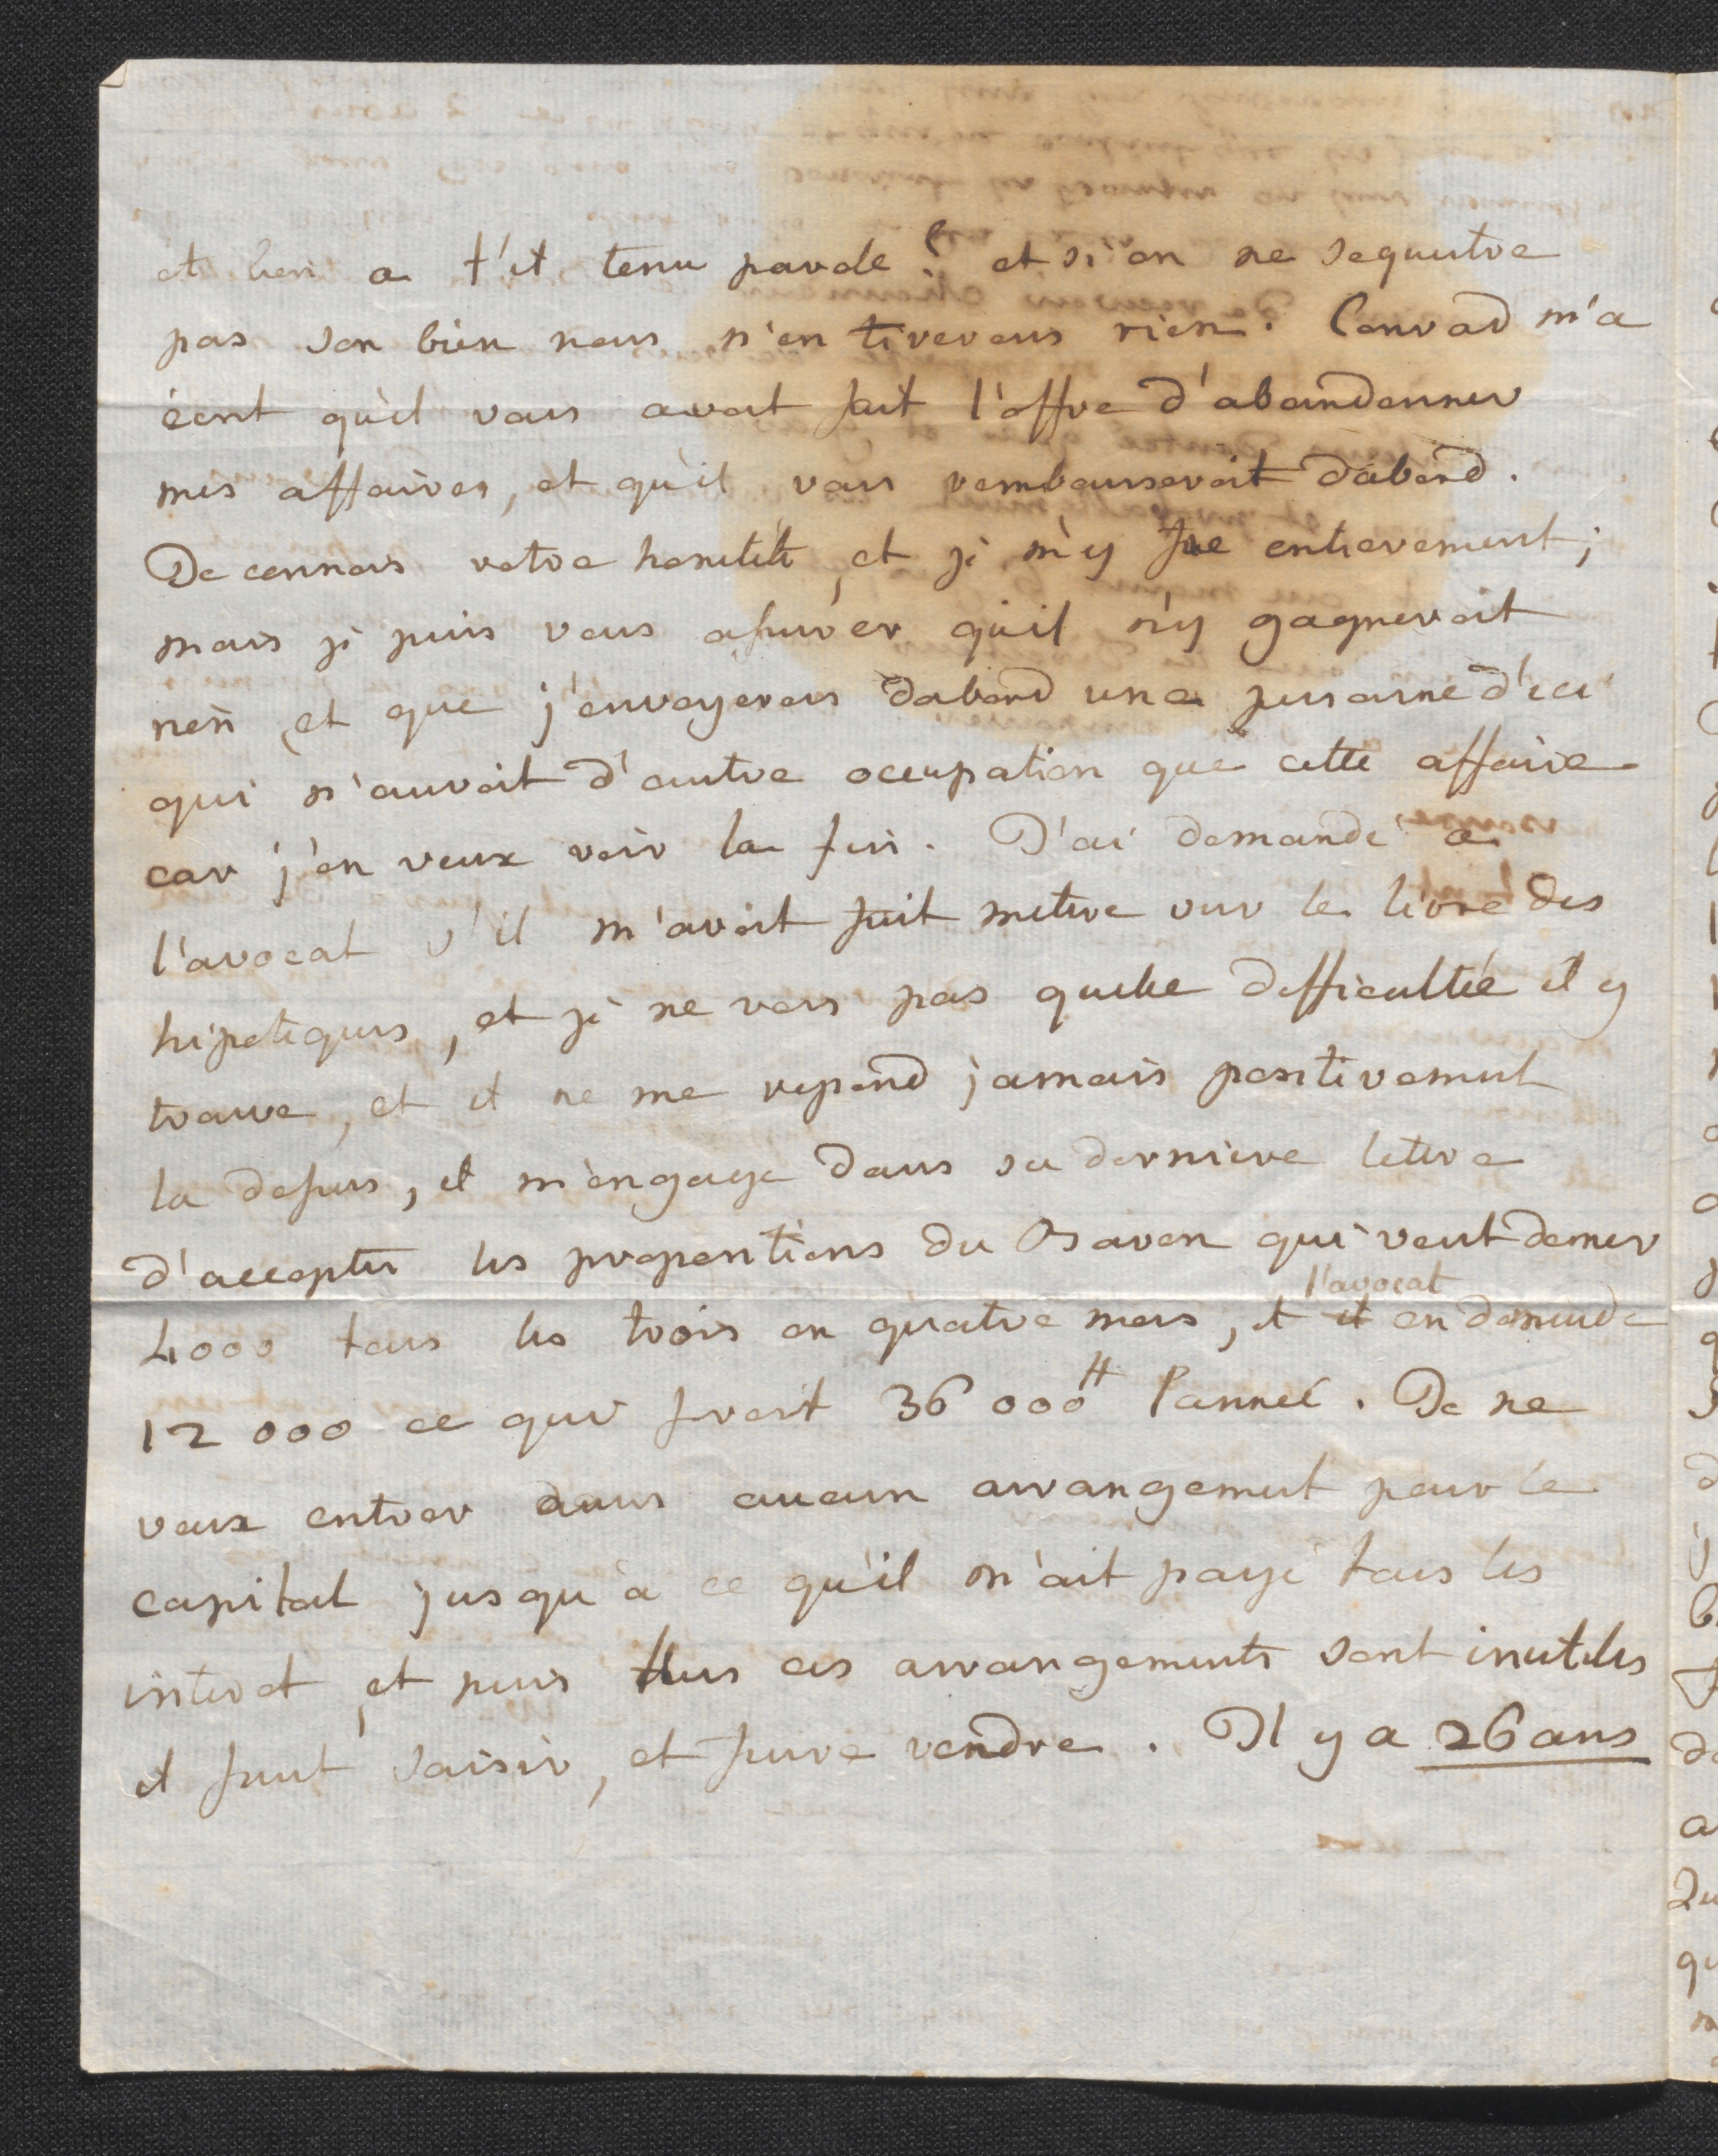 et bien a t'il tenu parole ? et si on ne sequestre
pas son bien nous n'en tirerons rien. Conrad m'a
écrit qu'il vous avoit fait l'offre d'abandonner
mes affaires, et qu'il vous rembourseroit dabord.
Je connois votre honêteté, et je m'y fie entierement ;
mais je puis vous assurer qu'il n'y gagneroit
rien, et que j'envoyerois dabord une personne d'ici
qui n'auroit d'autre occupation que cette affaire
car j'en veux voir la fin. J'ai demandé a
l'avocat s'il m'avoit fait metre sur le livre des
hipoteques, et je ne vois pas quelle difficultée il y
trouve, et il ne me repond jamais positivement
la dessus, il m'engage dans sa derniere letre
d'accepter les propositions du Baron qui veut donner
4000 tous les trois ou quatre mois, et il en demande
l'avocat
12 000 ce qui feroit 36 000 ᵗᵗ l'année. Je ne
veux entrer dans aucun arrangement pour le
capital jusqu'a ce qu'il m'ait payé tous les
interet, et puis tous ces arrangements sont inutiles
il faut saisir, et faire vendre. Il y a 26 ans